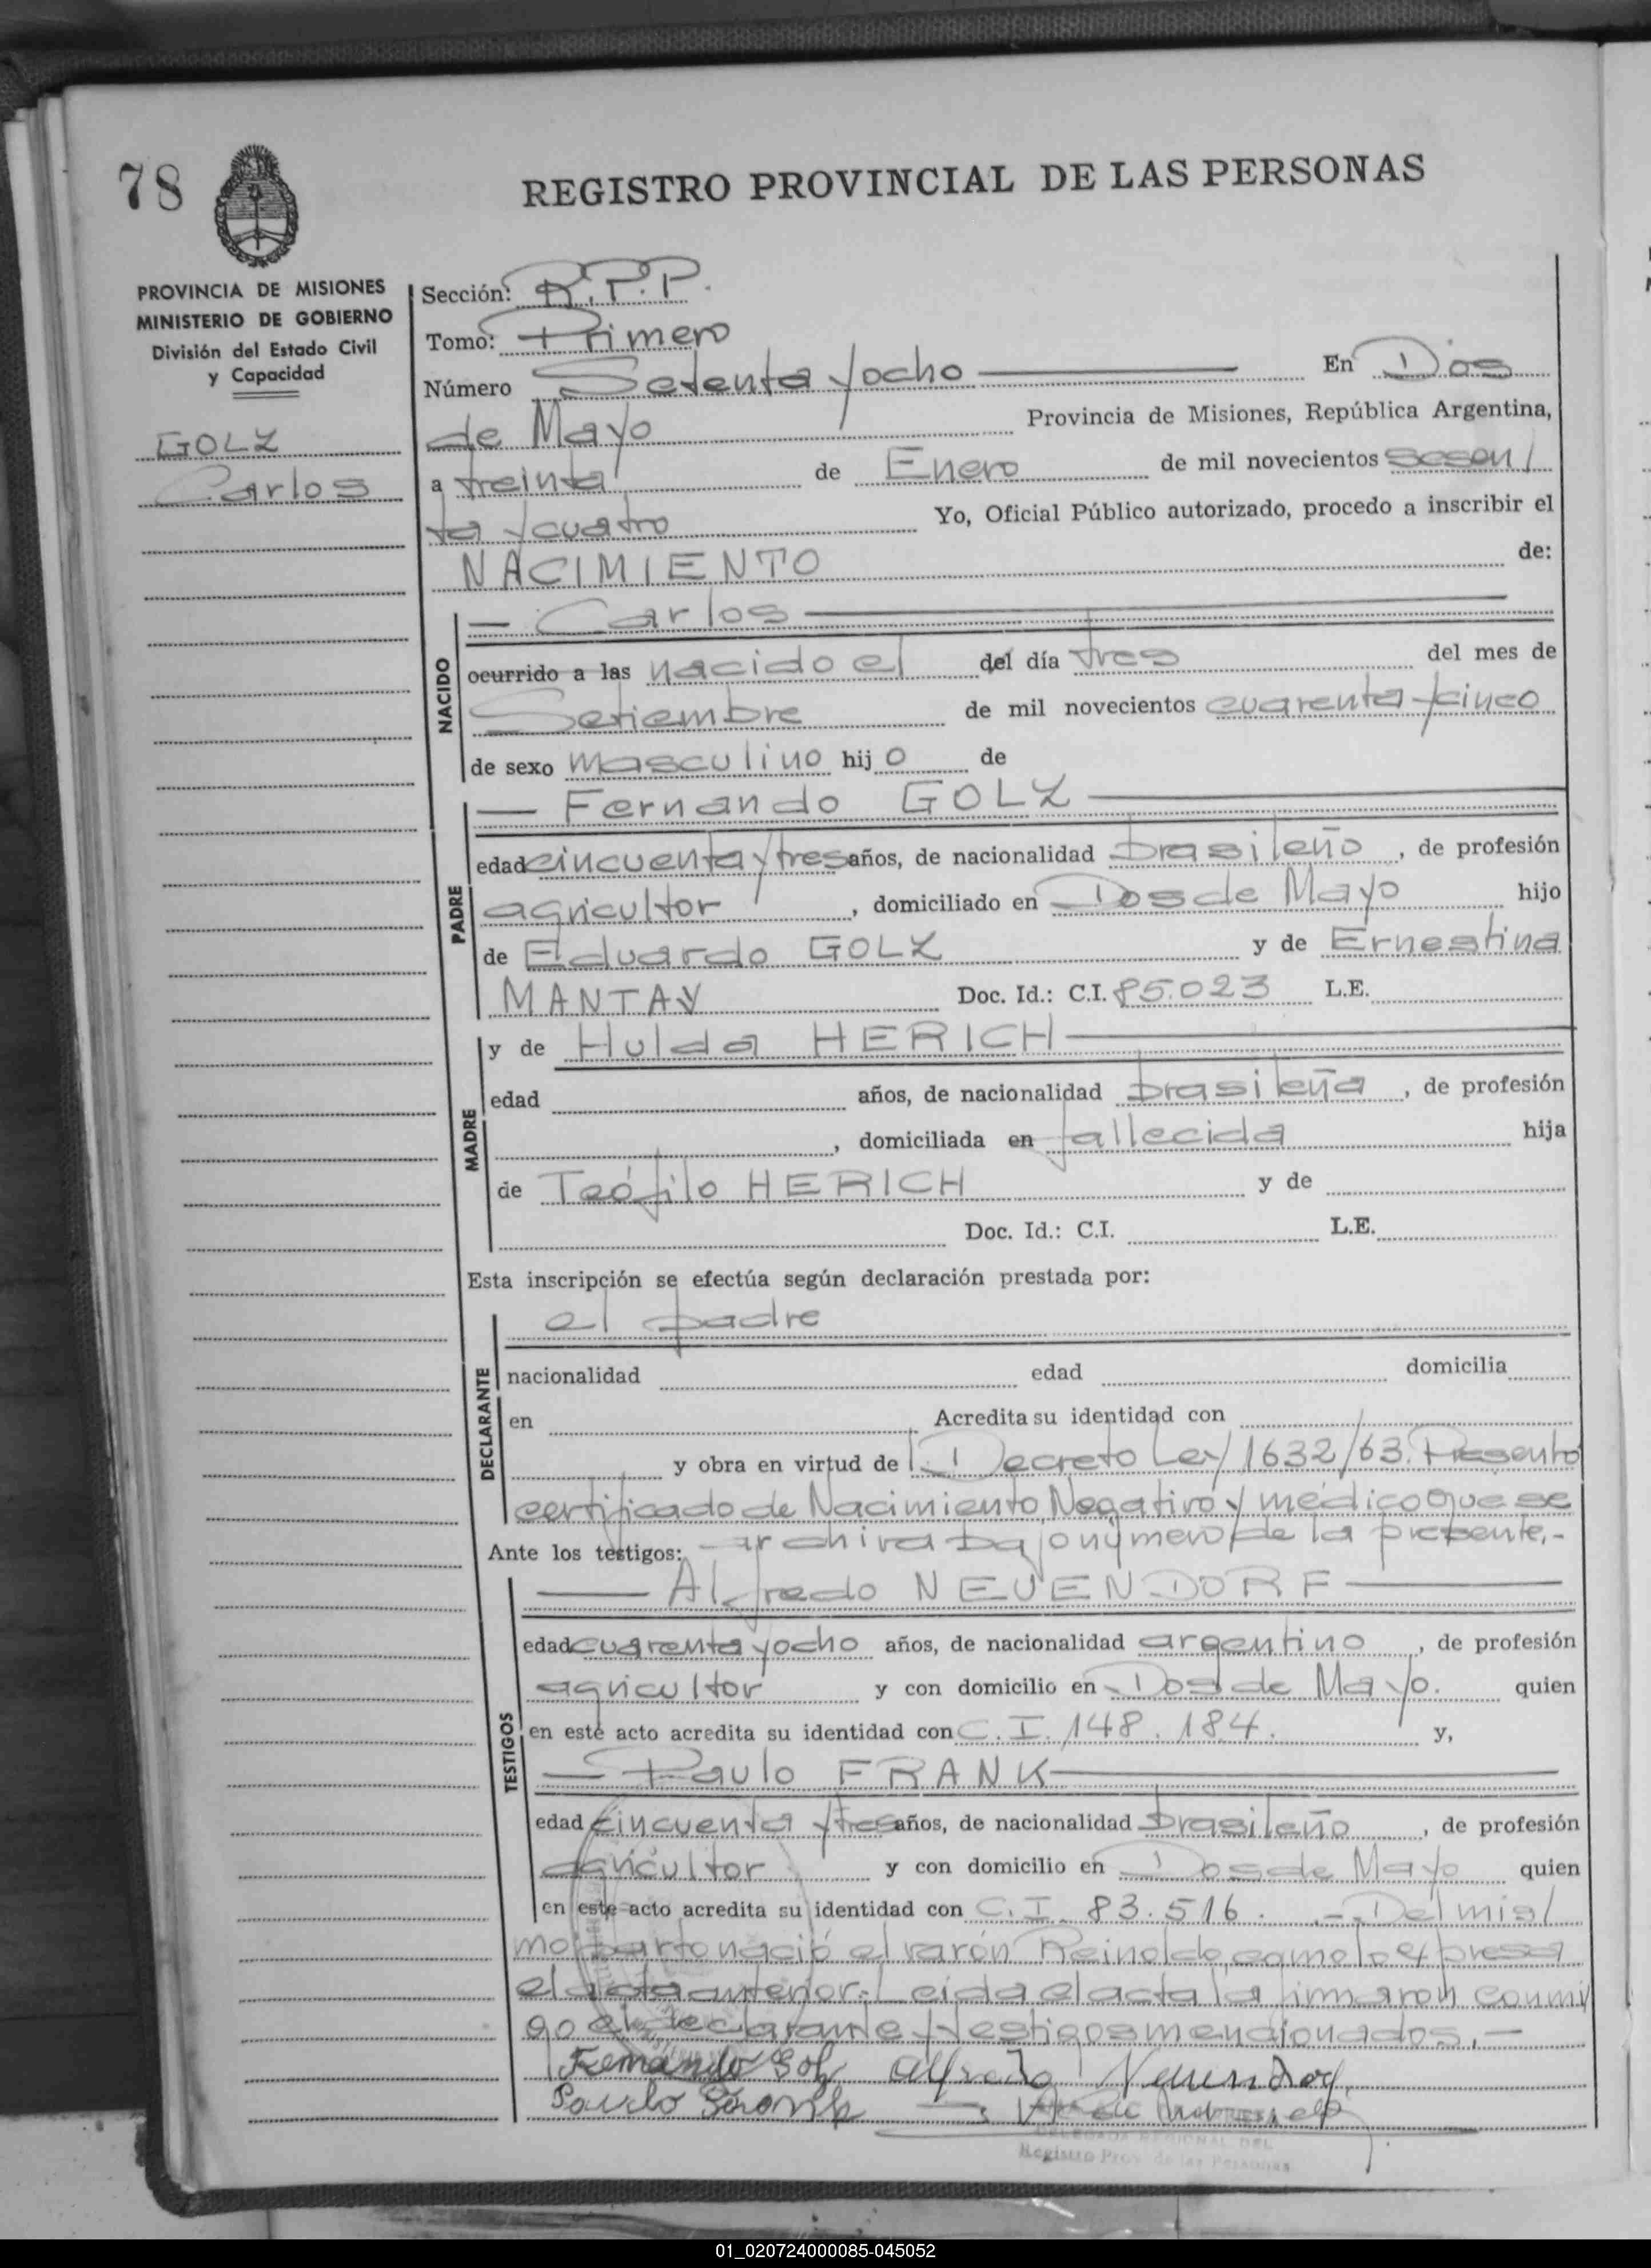 78
REGISTRO PROVINCIAL DE LAS PERSONAS
PROVINCIA DE MISIONES
MINISTERIO DE GOBIERNO
División del Estado Civil
y Capacidad
GOLZ
Carlos
Sección: R.P.P.
Tomo: Primero
Número Setenta y ocho En Dos
de Mayo Provincia de Misiones, República Argentina,
a treinta de Enero de mil novecientos sesen/
ta y cuatro Yo, Oficial Público autorizado, procedo a inscribir el
NACIMIENTO de:
NACIDO
— Carlos
ocurrido a las nacido el del día tres del mes de
Setiembre de mil novecientos cuarenta y cinco
de sexo masculino hij o de
PADRE
— Fernando GOLZ
edad cincuenta y tres años, de nacionalidad brasileño, de profesión
agricultor, domiciliado en Dos de Mayo hijo
de Eduardo GOLZ y de Ernestina
MANTAY Doc. Id.: C.I. 85.023 L.E.
MADRE
y de Hulda HERICH
edad años, de nacionalidad brasileña, de profesión
, domiciliada en fallecida hija
de Teófilo HERICH y de
Doc. Id.: C.I. L.E.
Esta inscripción se efectúa según declaración prestada por:
DECLARANTE
el padre
nacionalidad edad domicilia
en Acredita su identidad con
y obra en virtud de Decreto Ley 1632/63. Presento
certificado de Nacimiento Negativo y médico que se
Ante los testigos: archiva bajo número de la presente.-
TESTIGOS
— Alfredo NEUENDORF —
edad cuarenta y ocho años, de nacionalidad argentino, de profesión
agricultor y con domicilio en Dos de Mayo. quien
en este acto acredita su identidad con C.I. 148.184. y,
— Paulo FRANK —
edad cincuenta y tres años, de nacionalidad brasileño, de profesión
agricultor y con domicilio en Dos de Mayo quien
en este acto acredita su identidad con C.I. 83.516. .- Del mis/
mo parto nació el varón Reinoldo, como lo expresa
el acta anterior.- Leida el acta la firmaron conmi
go el declarante y testigos mencionados.-
Fernando Golz Alfredo Neuendorf
Paulo
DELEGADA REGIONAL DEL
Registro Prov. de las Personas
01_020724000085-045052